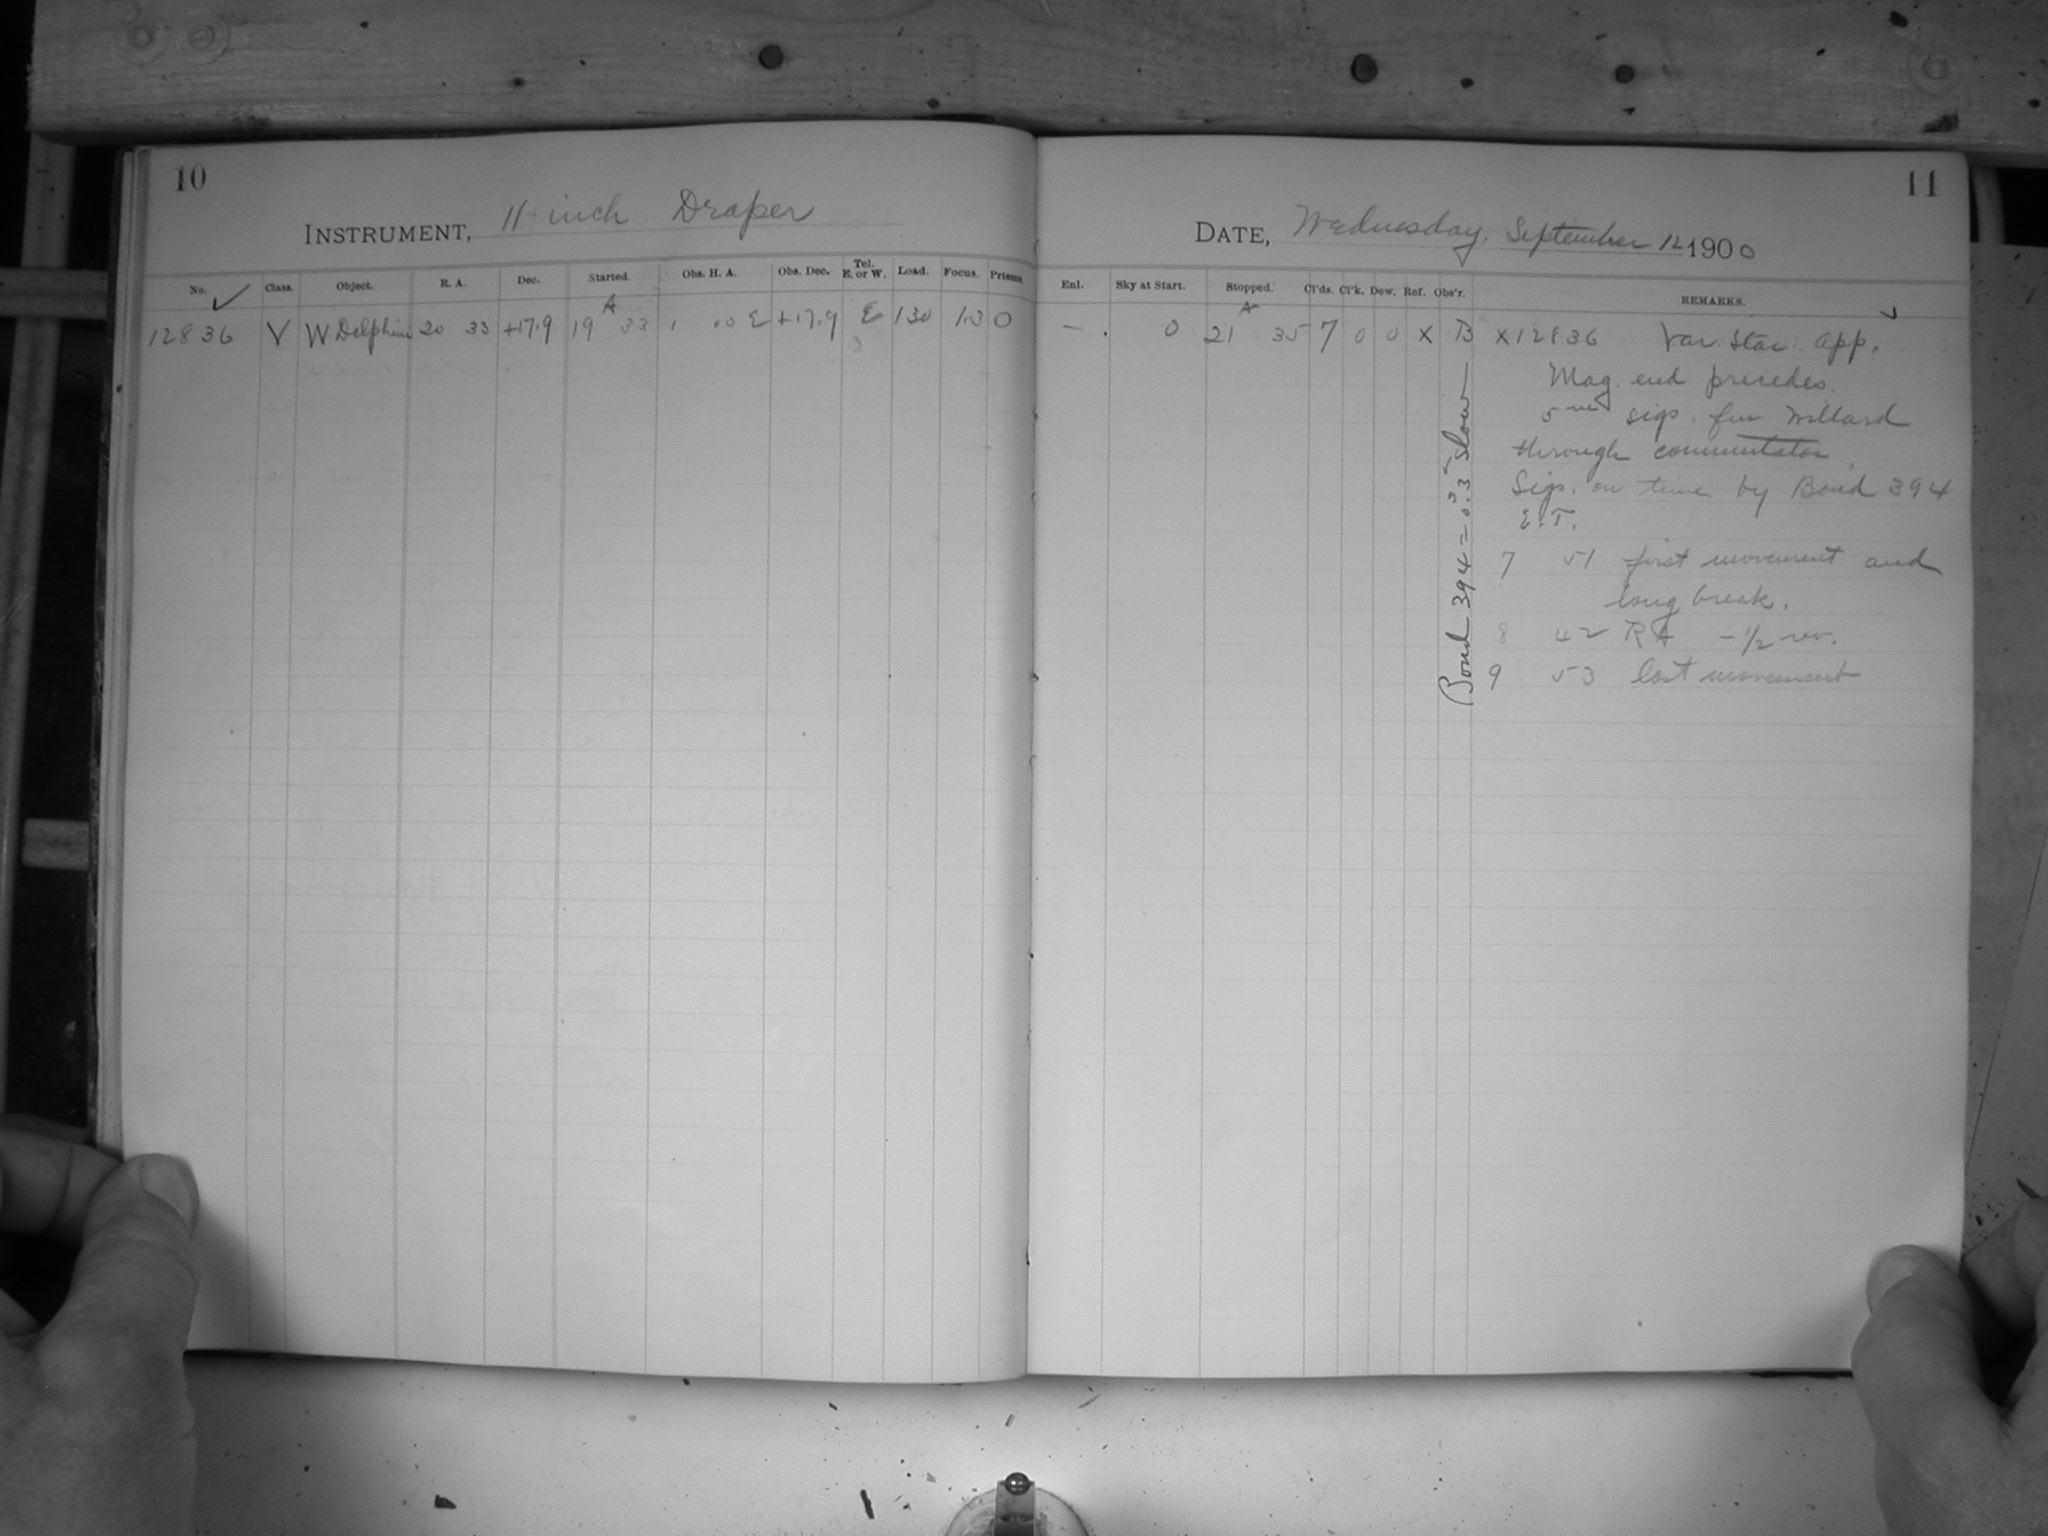 10
INSTRUMENT, 11 inch Draper
No. Class. Object. R. A. Dec. Started. Obs. H. A. Obs. Dec. Tel. E. or W. Load. Focus. Prisms
12836 V W Delphini 20 33 +17.9 19 33 1 00 E +17.9 E 130 1.30 0
11
DATE, Wednesday, September 12 1900
Enl. Sky at Start. Stopped. Cl'ds. Cl'k. Dew. Ref. Obs'r. REMARKS.
— 0 21 35 7 0 0 X B X12836 Var Star app.
Mag. end precedes.
5m sigs. for Willard
through commutator
Sigs. on time by Bond 394
E.T.
7 51 first movement and
long break.
8 42 RA - 1/2 rev.
9 53 last movement
Bond 394 = 0s.35 slow